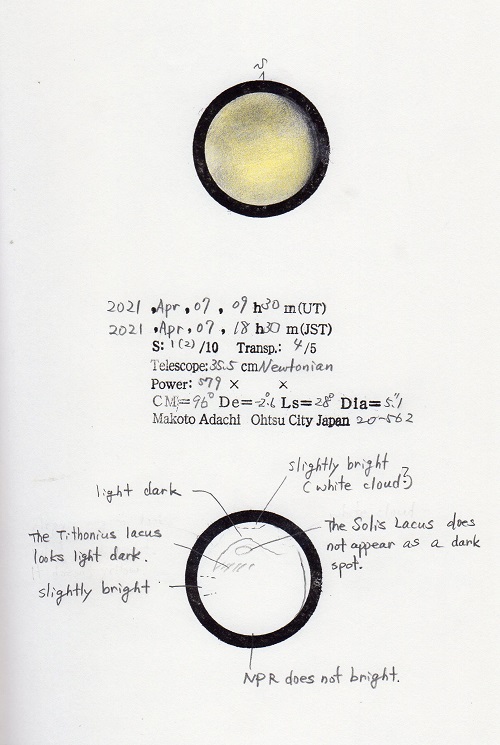 S
2021 , Apr , 07 , 09 h 30 m (UT)
2021 , Apr , 07 , 18 h 30 m (JST)
S: 1(2) /10 Transp.: 4/5
Telescope: 35.5 cm Newtonian
Power: 579 × ×
CM=96° De=-2.°6 Ls=28° Dia=5."1
Makoto Adachi Ohtsu City Japan 20-562
slightly bright
(white cloud?)
light dark
The Tithonius lacus
looks light dark.
The Solis Lacus does
not appear as a dark
spot.
slightly bright
NPR does not bright.